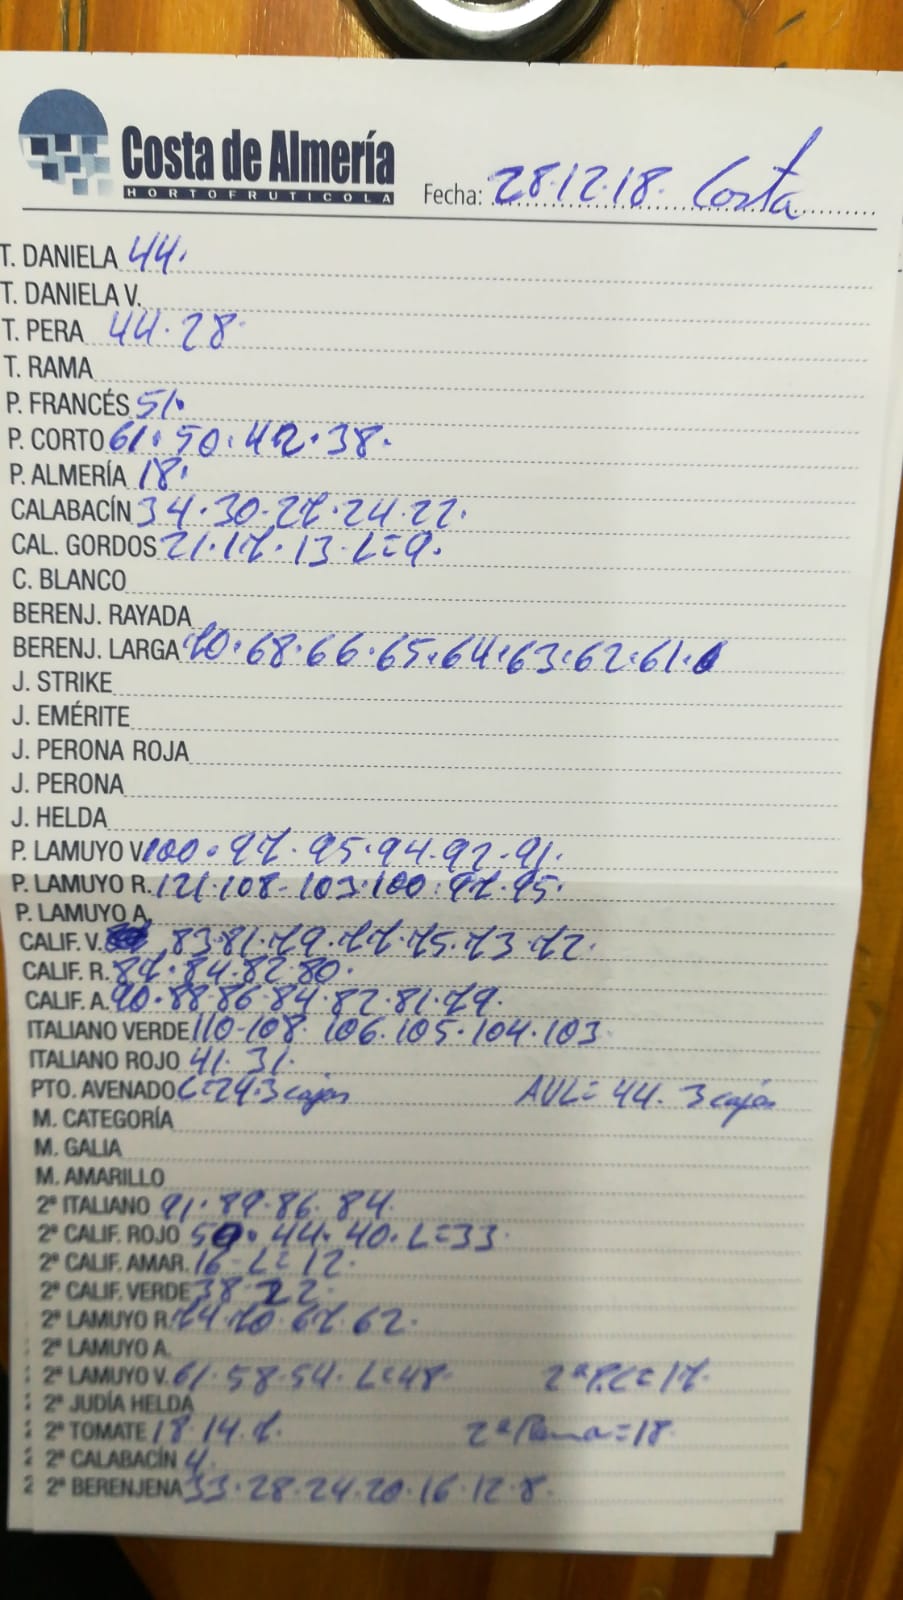 Costa de Almería
HORTOFRUTICOLA
Fecha: 28.12.18. Costa
T. DANIELA 44.
T. DANIELA V.
T. PERA 44.28
T. RAMA
P. FRANCÉS 51.
P. CORTO 61.50.42.38.
P. ALMERÍA 18.
CALABACÍN 34.30.27.24.22.
CAL. GORDOS 21.17.13.L=9.
C. BLANCO
BERENJ. RAYADA
BERENJ. LARGA 70.68.66.65.64.63.62.61.
J. STRIKE
J. EMÉRITE
J. PERONA ROJA
J. PERONA
J. HELDA
P. LAMUYO V. 100.97.95.94.92.91.
P. LAMUYO R. 121.108-103.100.97.95.
P. LAMUYO A.
CALIF. V. 83.81.79.77.75.73.72.
CALIF. R. 87.84.82.80.
CALIF. A. 90.88.86.84.82.81.79.
ITALIANO VERDE 110-108.106.105.104.103
ITALIANO ROJO 41.31.
PTO. AVENADO L=24.3 cajas AVL=44.3 cajas
M. CATEGORÍA
M. GALIA
M. AMARILLO
2ª ITALIANO 91.89.86.84.
2ª CALIF. ROJO 50.44.40.L=33.
2ª CALIF. AMAR. 16-L=12.
2ª CALIF. VERDE 38 22.
2ª LAMUYO R. 74.70.67.62.
2ª LAMUYO A.
2ª LAMUYO V. 61.58.54.L=48. 2ª P.C=17.
2ª JUDÍA HELDA
2ª TOMATE 18.14.7. 2ª Rama=18.
2ª CALABACÍN 4.
2ª BERENJENA 33.28.24.20.16.12.8.